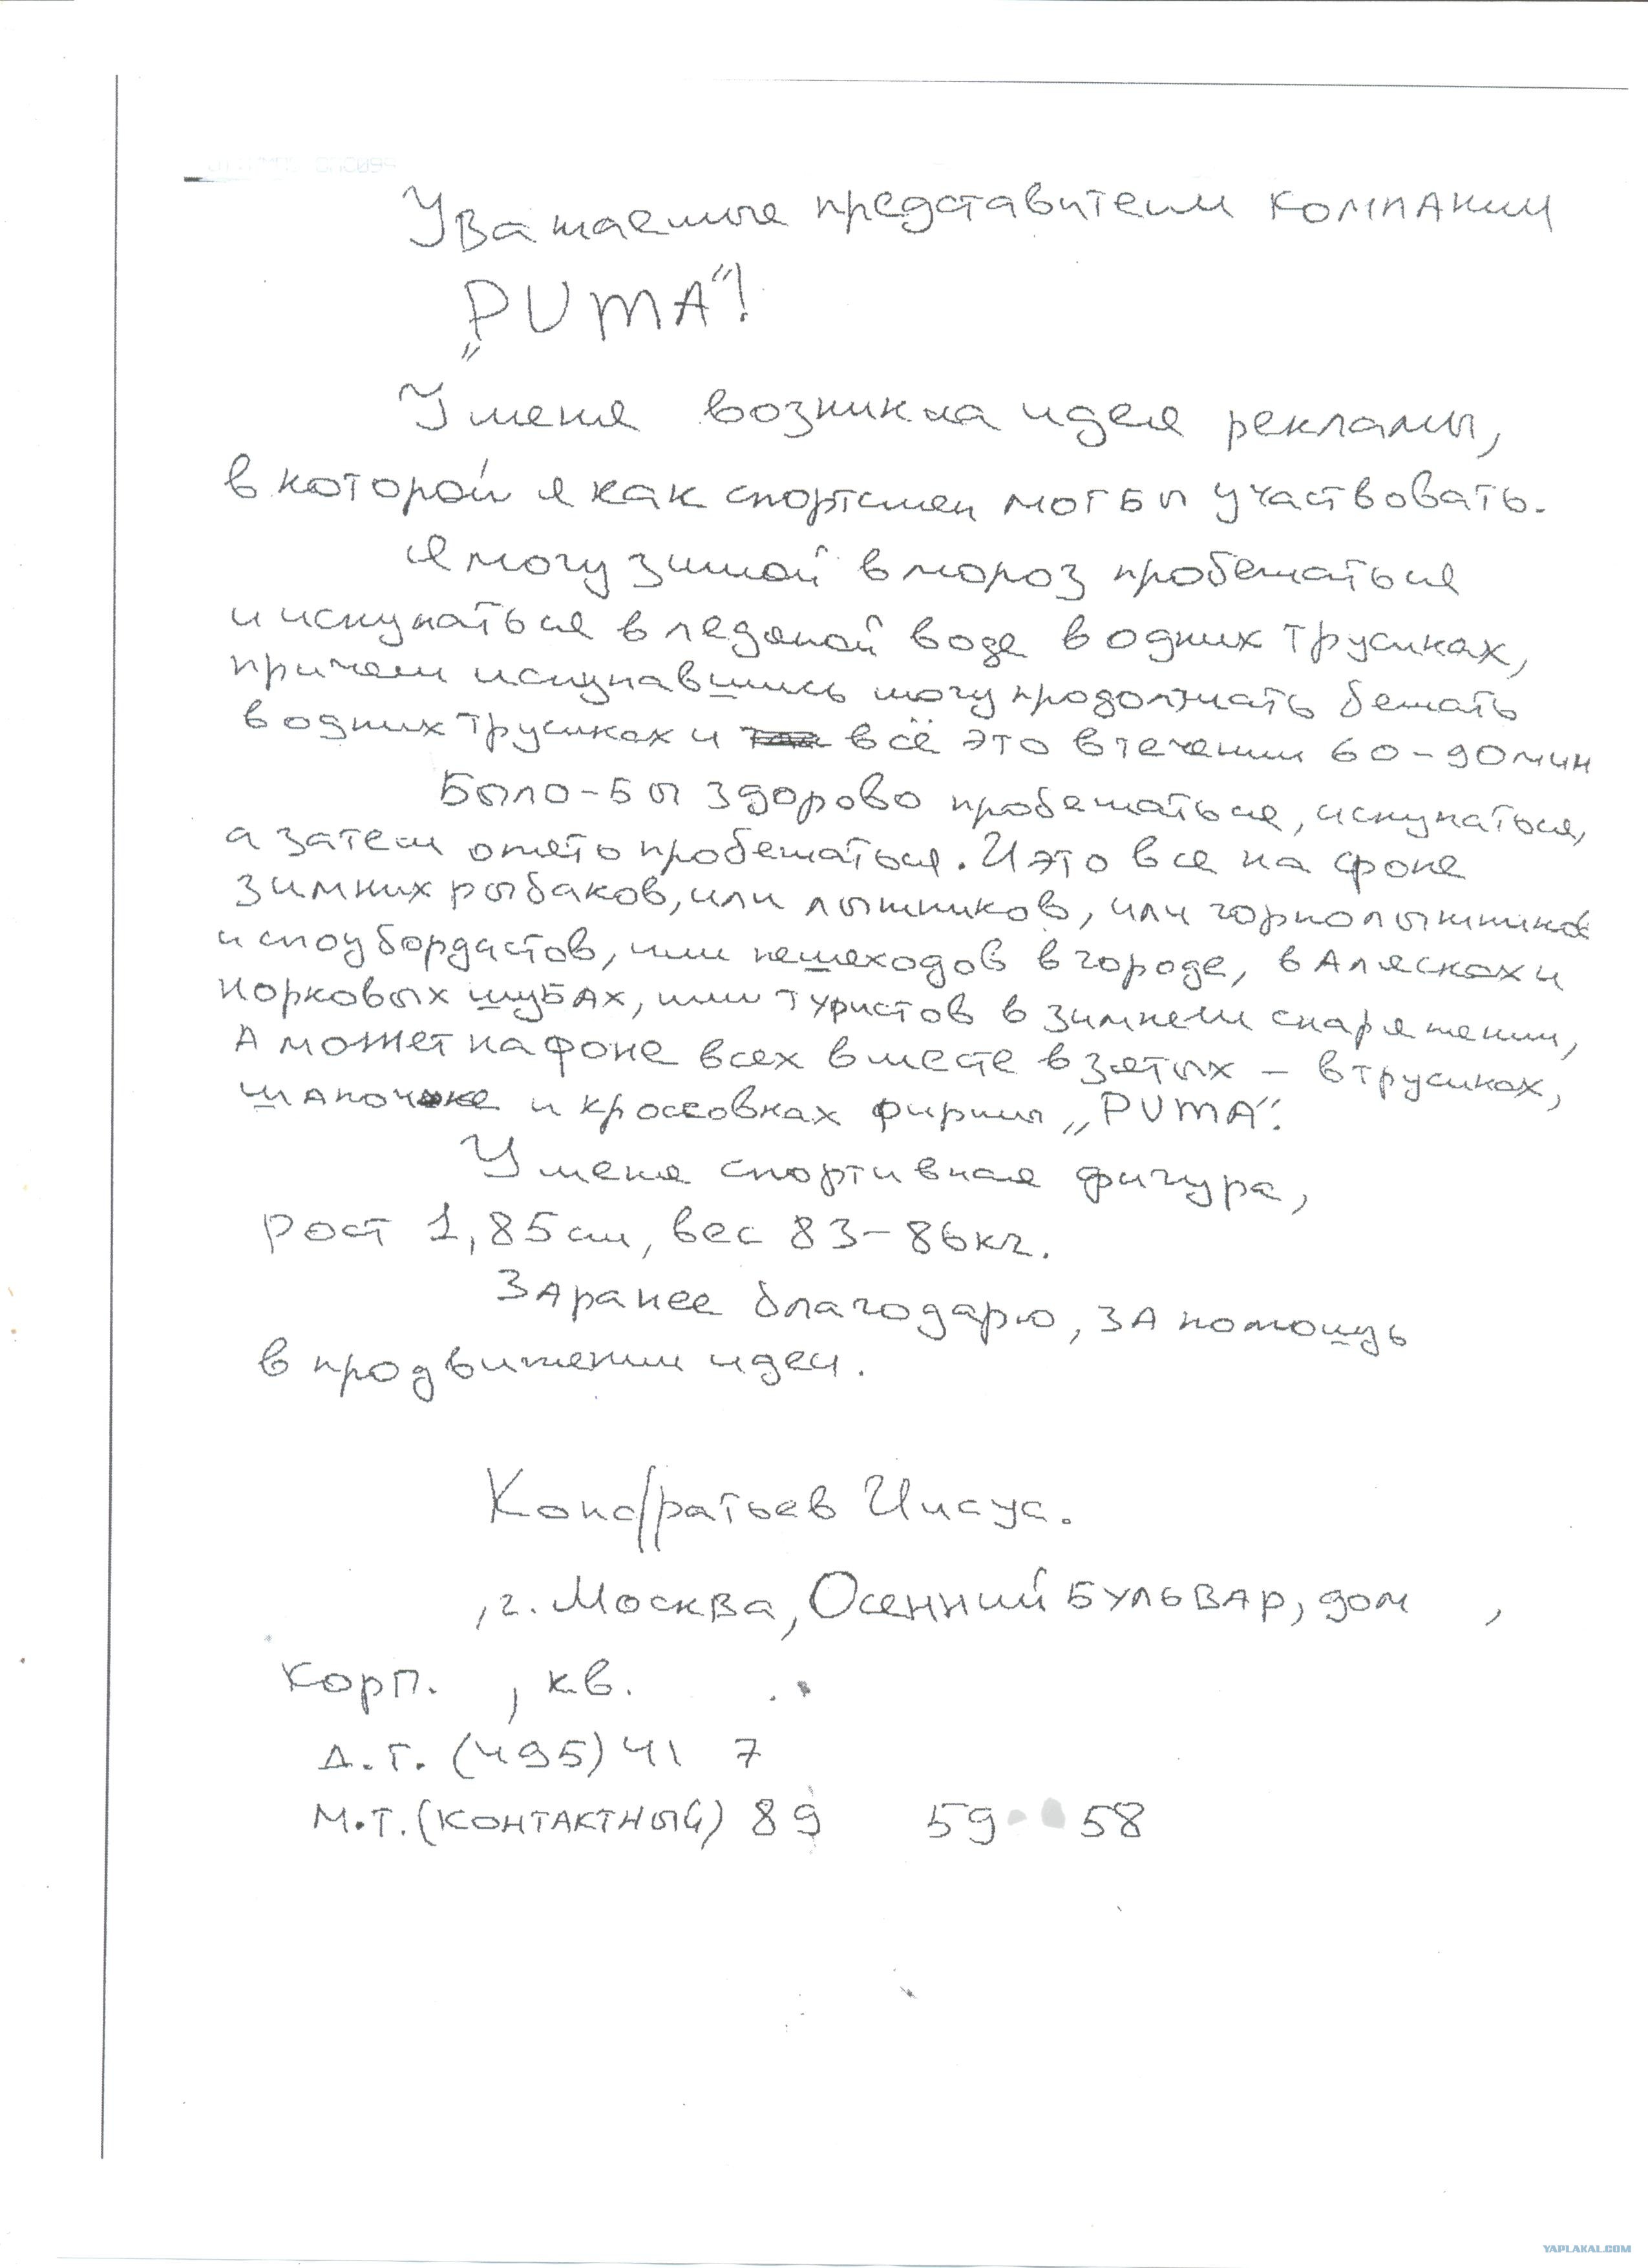 Уважаемые представители компании
„PUMA“!
У меня возникла идея рекламы,
в которой я как спортсмен мог бы участвовать.
Я могу зимой в мороз пробежаться
и искупаться в ледяной воде в одних трусиках,
причем искупавшись могу продолжать бежать
в одних трусиках и всё это в течении 60-90 мин
Было-бы здорово пробежаться, искупаться,
а затем опять пробежаться. И это все на фоне
зимних рыбаков, или лыжников, или горнолыжников
и сноубордистов, или пешеходов в городе, в Алясках и
норковых шубах, или туристов в зимнем снаряжении,
А может на фоне всех вместе взятых – в трусиках,
шапочке и кроссовках фирмы „PUMA“.
У меня спортивная фигура,
рост 1,85см, вес 83-86кг.
Заранее благодарю, за помощь
в продвижении идеи.
Кондратьев Иисус.
, г. Москва, Осенний бульвар, дом ,
корп. , кв. .
Д.Т. (495) 41 7
М.Т. (контактный) 89 59- 58
YAPLAKAL.COM